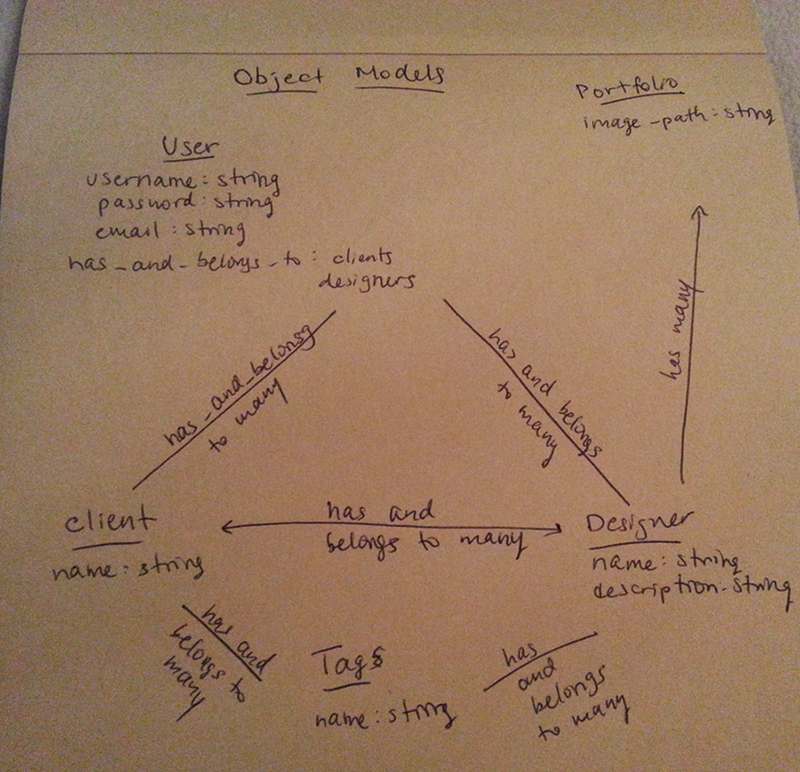 Object Models
Portfolio
image_path: string
User
username: string
password: string
email: string
has_and_belongs_to: clients
designers
has_and_belonsg
to many
has and belongs
to many
has many
client
name: string
has and
belongs to many
Designer
name: string
description-string
has and
belongs to
many
Tags
name: string
has
and
belongs
to many